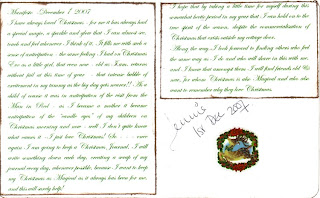 Henstefe - December 1 2007
I have always loved Christmas - for me it has always had
a special magic, a sparkle and glow that I can almost see,
touch and feel whenever I think of it. It fills me with such a
sense of anticipation - the same feeling I had on Christmas
Eve as a little girl, that even now old as I am, returns
without fail at this time of year - that extreme bubble of
excitement in my tummy as the big day gets nearer!! As a
child of course it was in anticipation of the visit from the
Man in Red - as I became a mother it became
anticipation of the "candle eyes" of my children on
Christmas morning and now - well I don't quite know
what causes it - I just love Christmas! So . . . . once
again I am going to keep a Christmas Journal. I will
write something down each day, creating a scrap of my
journal every day, whenever possible, because I want to keep
my Christmas as Magical as it always has been for me,
and this will surely help!
I hope that by taking a little time for myself during this
somewhat hectic period in my year that I can hold on to the
true spirit of the season, despite the commercialisation of
Christmas that exists outside my cottage door.
Along the way I look forward to finding others who feel
the same way as I do and who will share in this with me,
and I know that amongst them I will find friends old &
new, for whom Christmas is also Magical and who also
want to remember why they love Christmas.
1st Dec 2007